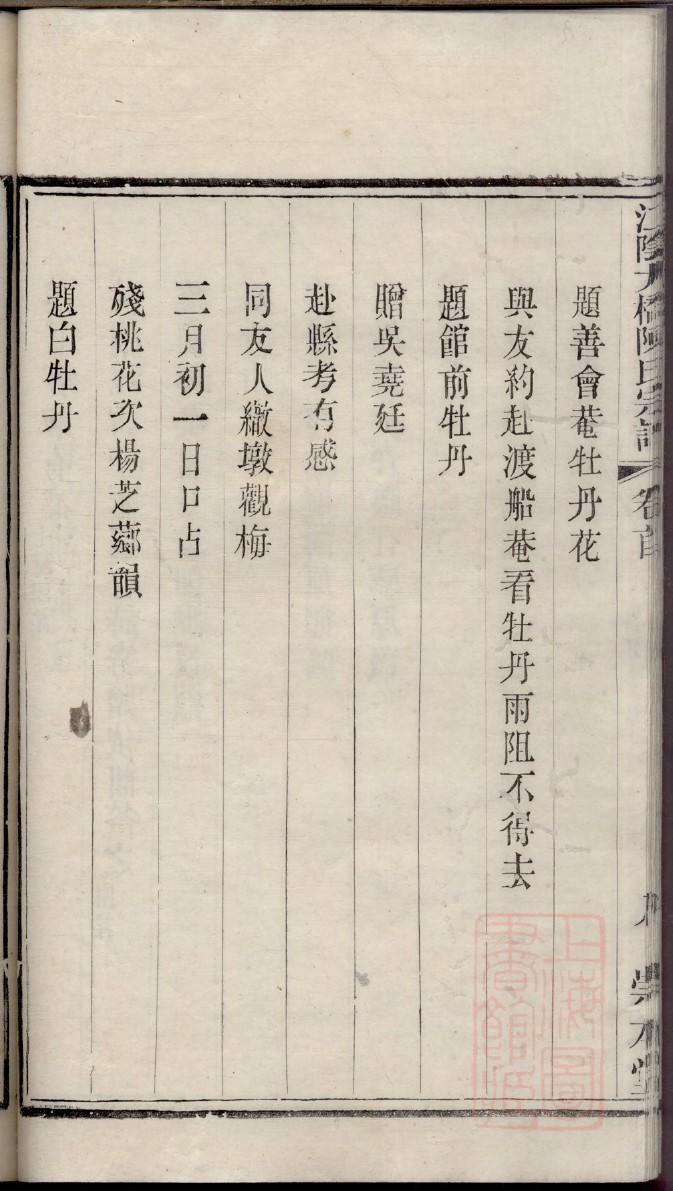 江陰
橋陳氏宗譜
卷首
崇本堂
題善會菴牡丹花
與友約赴渡船菴看牡丹雨阻不得去
題館前牡丹
贈吳堯廷
赴縣考有感
同友人繖墩觀梅
三月初一日口占
殘桃花次楊芝薌韻
題白牡丹
上海圖
書館藏